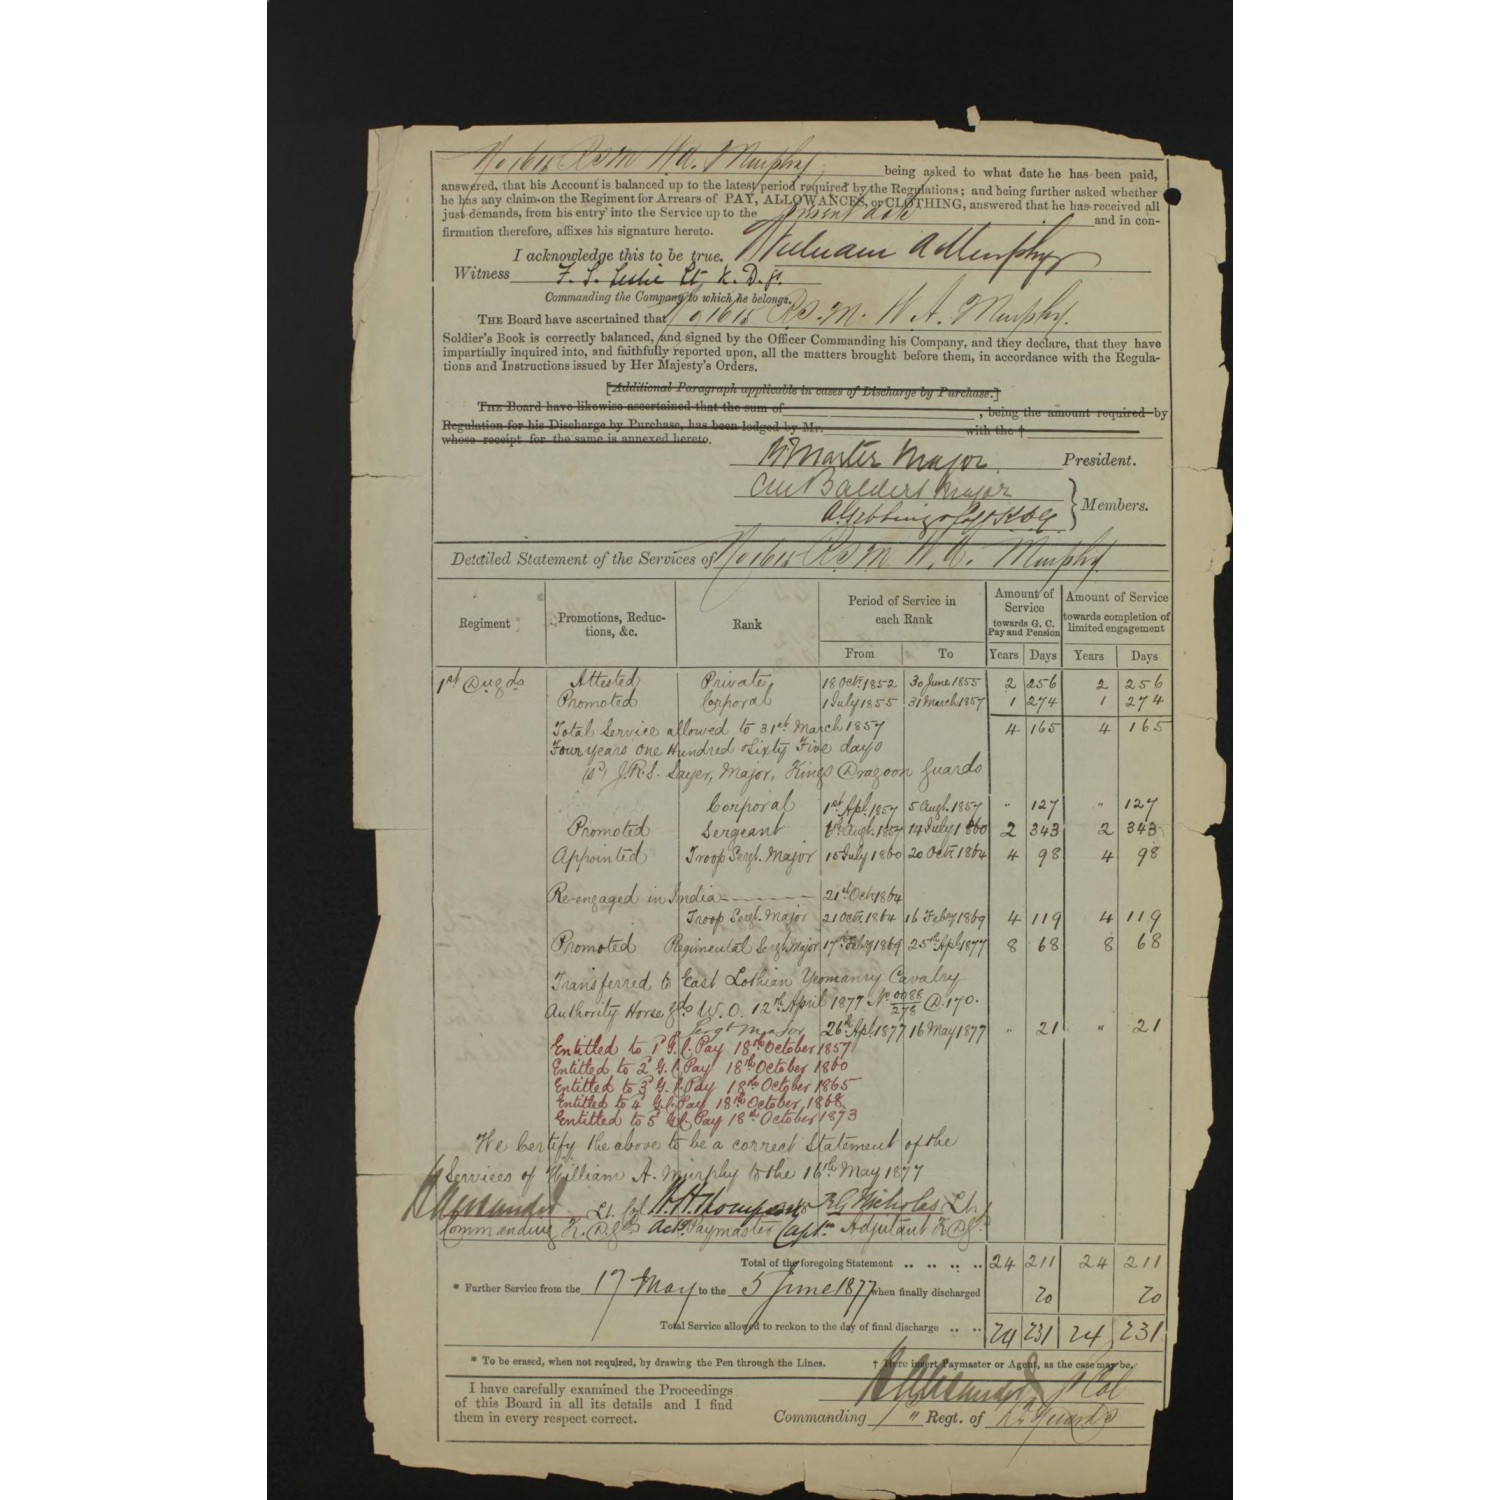 No 1615 RSM W.A. Murphy being asked to what date he has been paid,
answered, that his Account is balanced up to the latest period required by the Regulations; and being further asked whether
he has any claim on the Regiment for Arrears of PAY, ALLOWANCES, or CLOTHING, answered that he has received all
just demands, from his entry into the Service up to the present date and in con-
firmation therefore, affixes his signature hereto.
I acknowledge this to be true. William A Murphy
Witness F. S. Leslie Lt K. D. Gs.
Commanding the Company to which he belongs.
THE Board have ascertained that No 1615 R.S.M. W. A. Murphy.
Soldier's Book is correctly balanced, and signed by the Officer Commanding his Company, and they declare, that they have
impartially inquired into, and faithfully reported upon, all the matters brought before them, in accordance with the Regula-
tions and Instructions issued by Her Majesty's Orders.
[Additional Paragraph applicable in cases of Discharge by Purchase.]
THE Board have likewise ascertained that the sum of , being the amount required by
Regulation for his Discharge by Purchase, has been lodged by Mr. with the †
whose receipt for the same is annexed hereto.
Marter Major President.
Major
Members.
Detailed Statement of the Services of No 1615 RSM W. A. Murphy
Regiment Promotions, Reduc-tions, &c. Rank Period of Service in each Rank Amount of Service towards G. C. Pay and Pension Amount of Service towards completion of limited engagement
From To Years Days Years Days
1st D. Gds Attested Private 18 Octr. 1852 30 June 1855 2 256 2 256
Promoted Corporal 1 July 1855 31 March 1857 1 274 1 274
Total Service allowed to 31st March 1857 4 165 4 165
Four years One Hundred & Sixty Five days
(sd) J.R.S. Sayer, Major, Kings Dragoon Guards
Corporal 1st Apl. 1857 5 Augt. 1857 " 127 " 127
Promoted Sergeant 6th Augt. 1857 14 July 1860 2 343 2 343
Appointed Troop Sergt. Major 15 July 1860 20 Octr. 1864 4 98 4 98
Re-engaged in India 21st Octr 1864
Troop Sergt. Major 21 Octr. 1864 16 Feby 1869 4 119 4 119
Promoted Regimental Sergt Major 17th Feby 1869 25th Apl 1877 8 68 8 68
Transferred to East Lothian Yeomanry Cavalry
Authority Horse Gds W.O. 12th April 1877 No 0088/278 D. 170.
Sergt Major 26th Apl. 1877 16 May 1877 " 21 " 21
Entitled to 1d G.C. Pay 18th October 1857
Entitled to 2d G.C. Pay 18th October 1860
Entitled to 3d G.C. Pay 18th October 1865
Entitled to 4d G.C. Pay 18th October, 1868
Entitled to 5d G.C. Pay 18th October 1873
We Certify the above to be a correct Statement of the
Services of William A. Murphy to the 16th May 1877
H Alexander Lt. Col H. H. Thompson R G Nicholas Lt.
Commanding K. D. Gds Actg Paymaster Captn Adjutant K D Gs
Total of the foregoing Statement .. .. .. .. 24 211 24 211
* Further Service from the 17 May to the 5 June 1877 when finally discharged 20 20
Total Service allowed to reckon to the day of final discharge .. .. 24 231 24 231
* To be erased, when not required, by drawing the Pen through the Lines. † Here insert Paymaster or Agent, as the case may be.
I have carefully examined the Proceedings
of this Board in all its details and I find
them in every respect correct.
H Alexander Lt Col
Commanding 1st Regt. of D. Guards